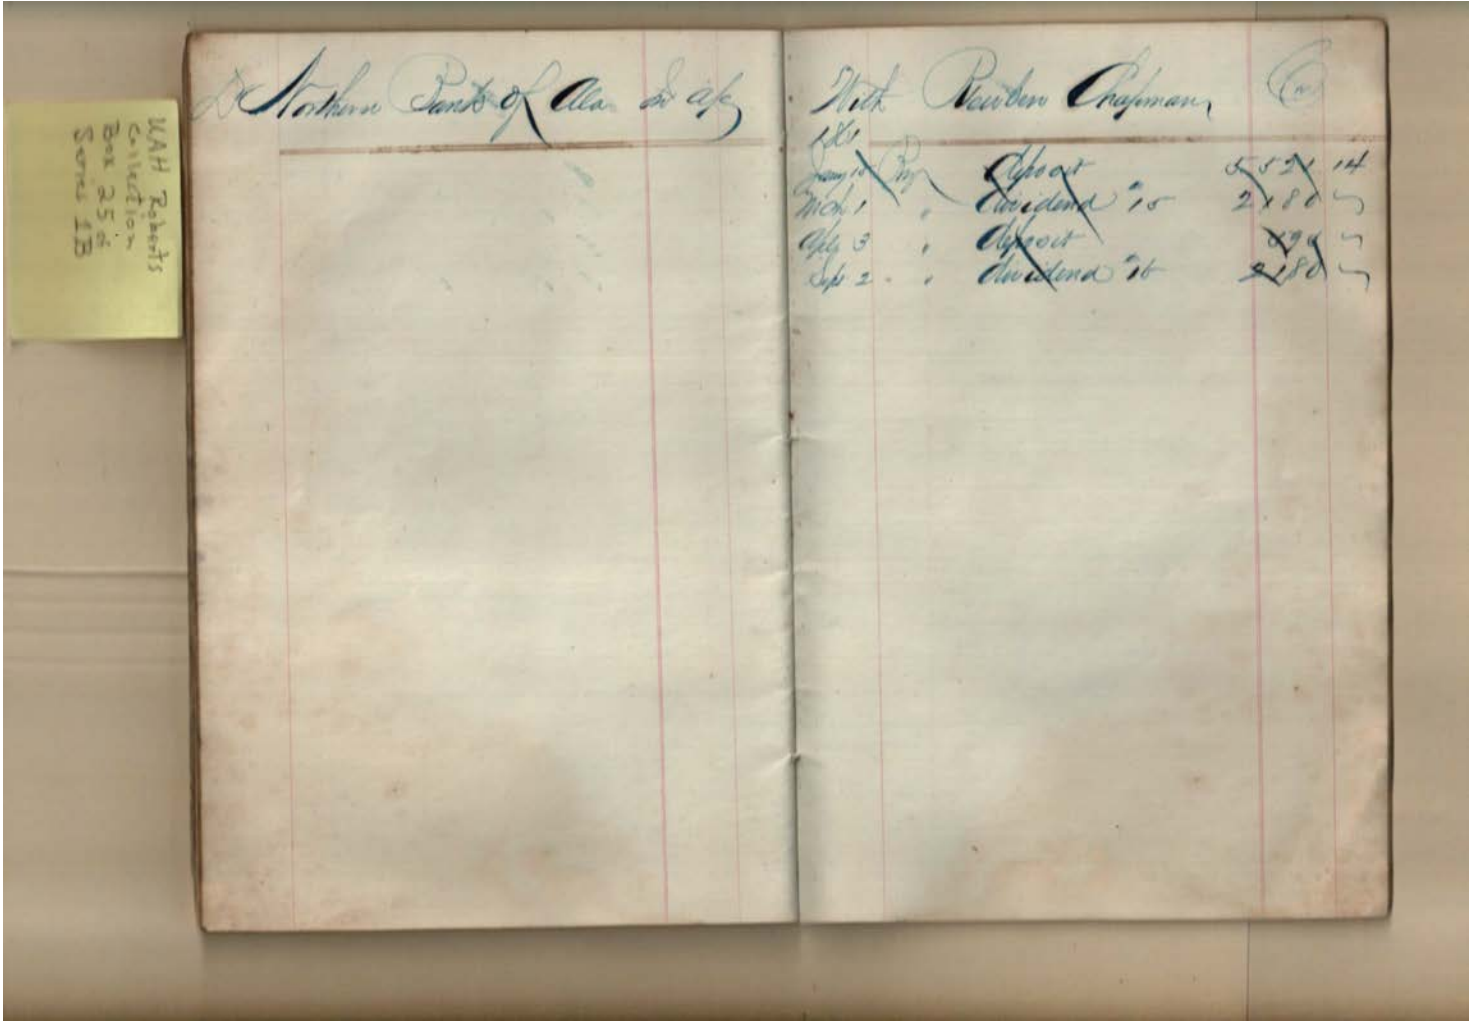 UAH Roberts
Collection
Box 25 of
Series 1B
Dr Northern Bank of Ala in a/c
With Reuben Chapman Cr
1861
Jany 15 By deposit 5521 14
Mch 1 " dividend # 15 2180 ~
Apl 3 " deposit 890 ~
Sept 2 " dividend # 16 2180 ~